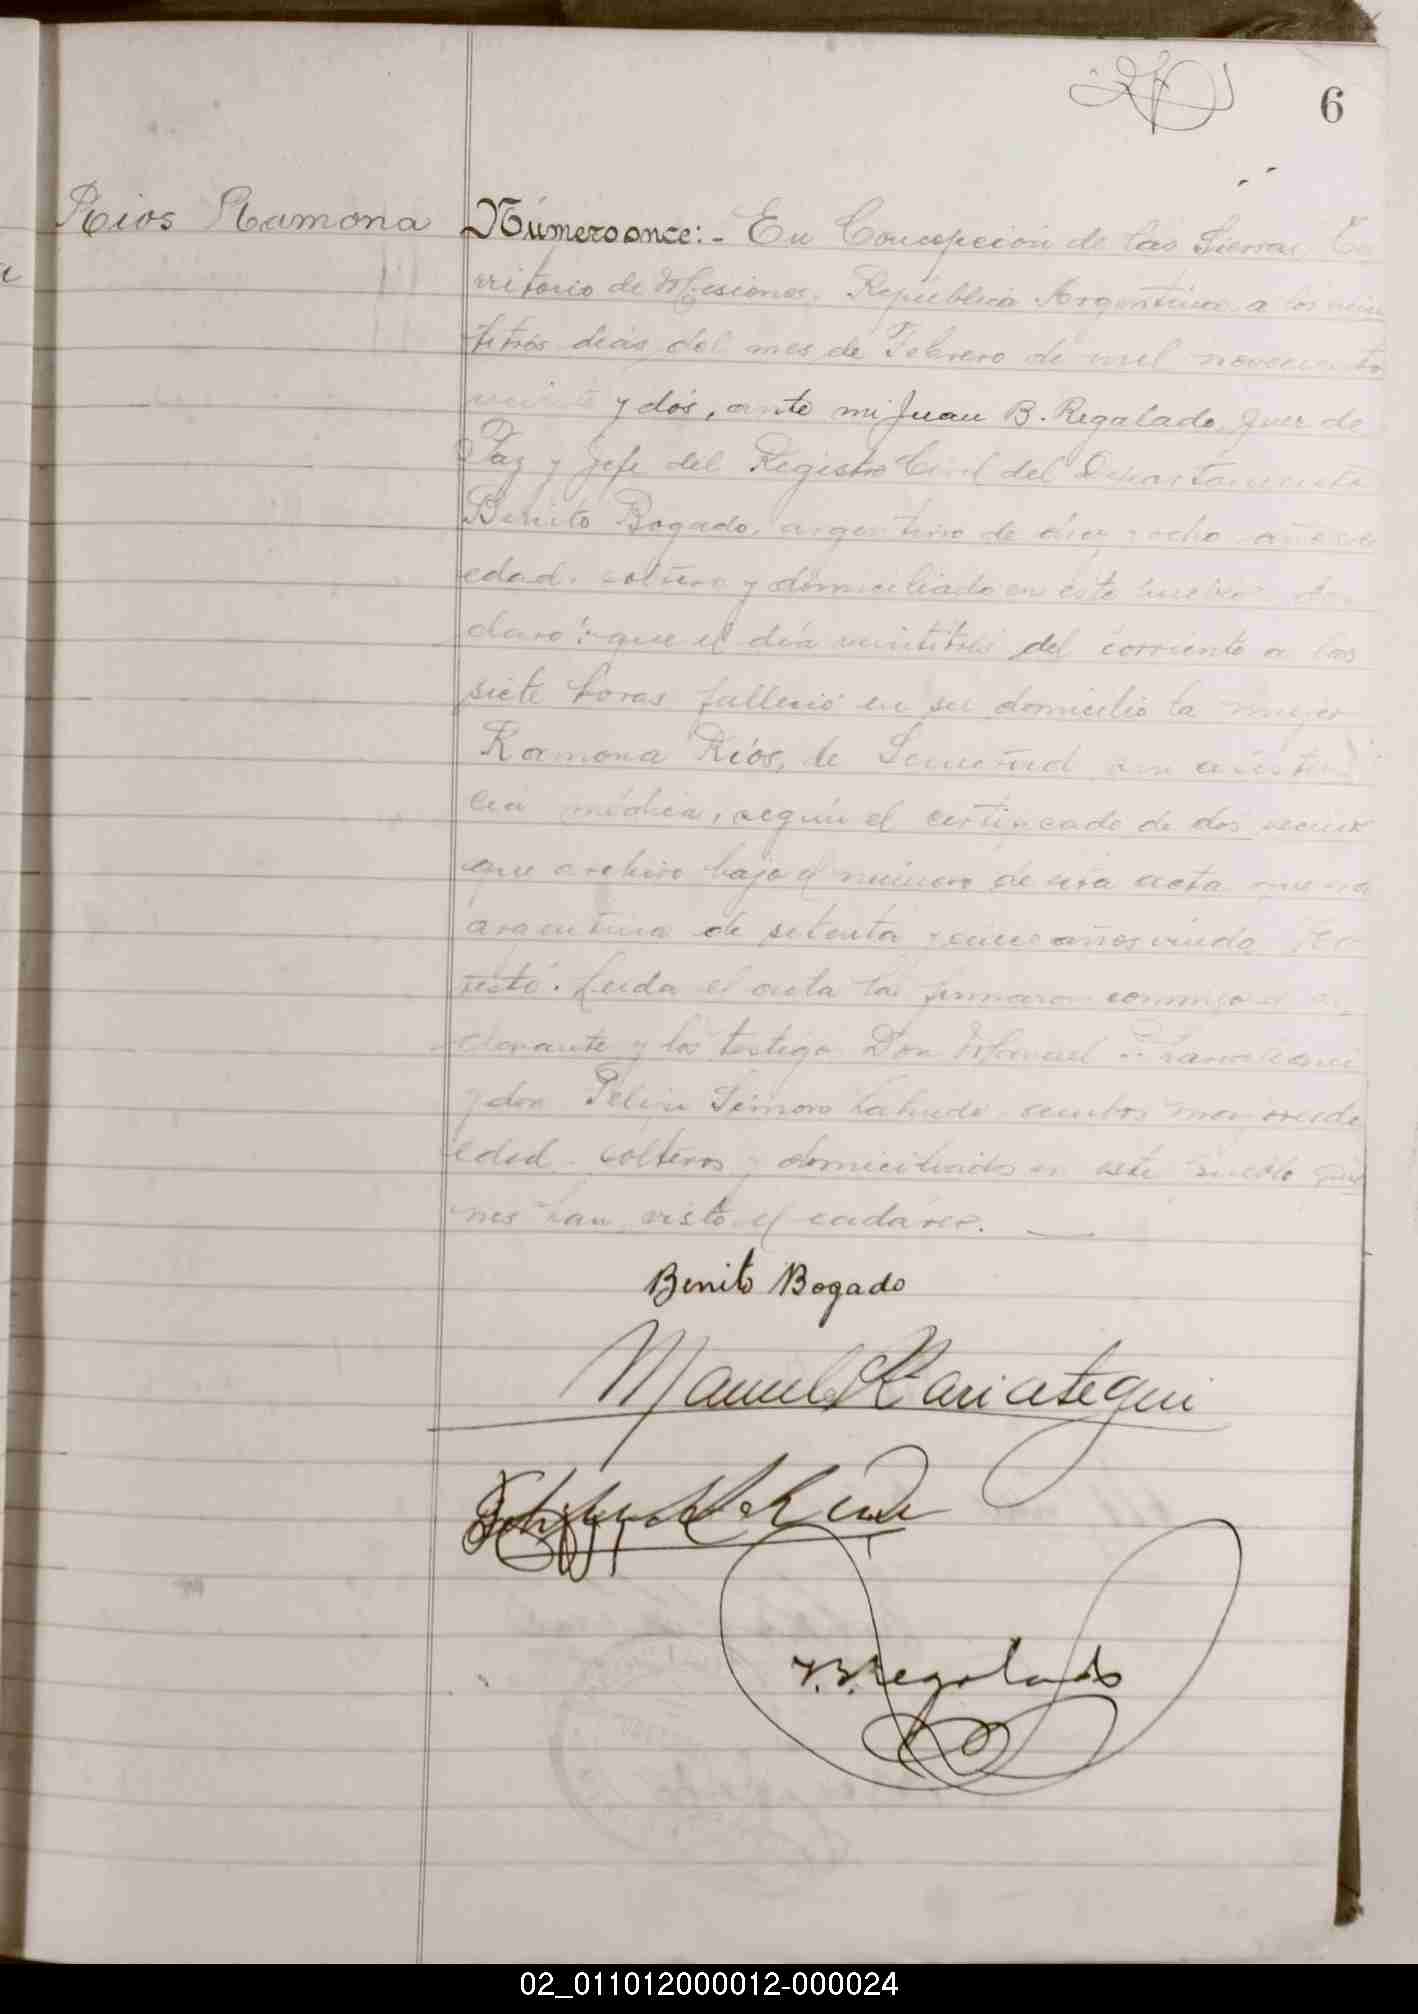 6
Rios Ramona
Número once:- En Concepción de las Sierras, Te
rritorio de Misiones, República Argentina, a los vein
titrés días del mes de Febrero de mil novecientos
veinte y dós, ante mi Juan B. Regalado, Juez de
Paz y Jefe del Registro Civil del Departamento
Benito Bogado, argentino de diez y ocho años de
edad, soltero y domiciliado en este pueblo de
claró: que el día veintitrés del corriente a las
siete horas falleció en su domicilio la mujer
Ramona Ríos, de Senectud, sin asisten
cia médica, según el certificado de dos vecinos
que archivo bajo el número de esta acta que era
argentina de setenta y cinco años viuda
testó. Leida el acta la firmaron conmigo el de
clarante y los testigos Don Manuel
y don Felipe Labrada, ambos mayores de
edad, solteros y domiciliados en este pueblo quie
nes han visto el cadáver.
Benito Bogado
Manuel Mariategui
J. B. Regalado
02_011012000012-000024